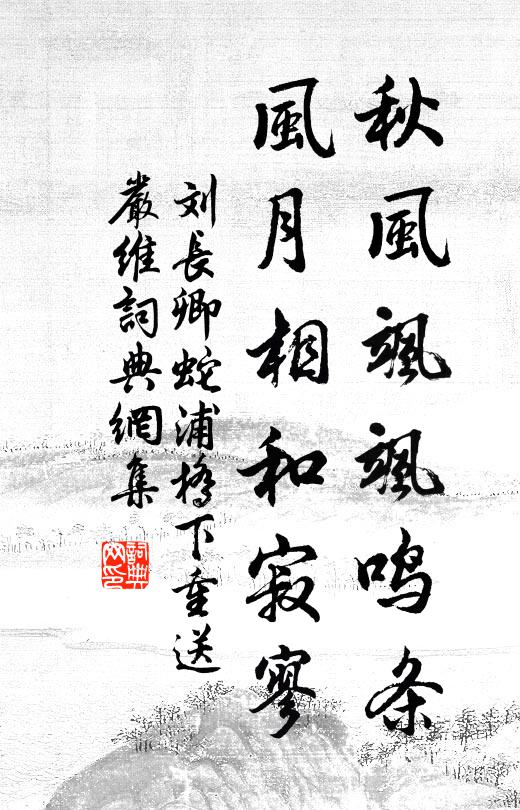 秋風颯颯鳴条
風月相和寂寥
刘長卿蛇浦橋下重送
嚴維詞典網集
詞典网印